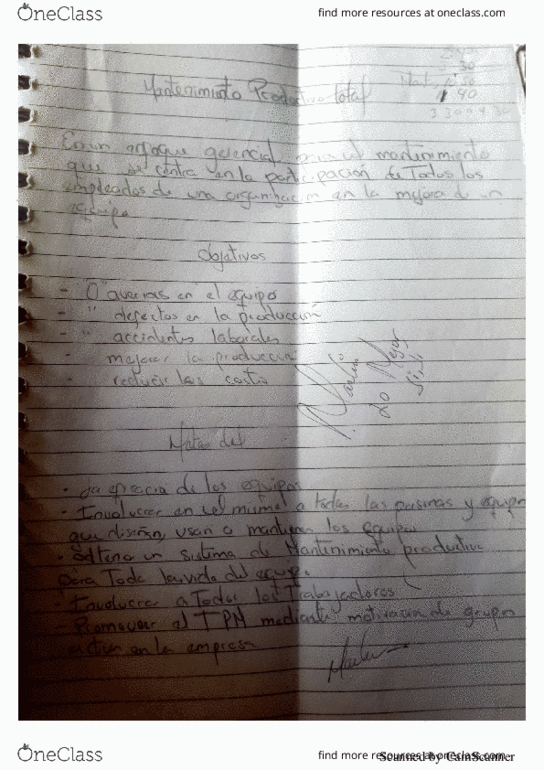 OneClass
find more resources at oneclass.com
30
90
Mantenimiento Productivo total
Es un enfoque gerencial para el mantenimiento
que se centra en la participación de Todos los
empleados de una organización en la mejora de un
equipo
Objetivos
- "0" averias en el equipo
- " defectos en la producción
- " accidentes laborales
- mejorar la producción
- reducir los costos
lo Mejor
Metas del
- La eficacia de los equipos
- Involucrar en el a todas las personas y equipos
que diseñan, usan o mantienen los equipos
- obtener un sistema de Mantenimiento productivo
para Toda la vida del equipo
- Involucrar a Todos los Trabajadores
- Promover el TPM mediante motivación de grupos
activos en la empresa
OneClass
find more resources at oneclass.com
Scanned by CamScanner